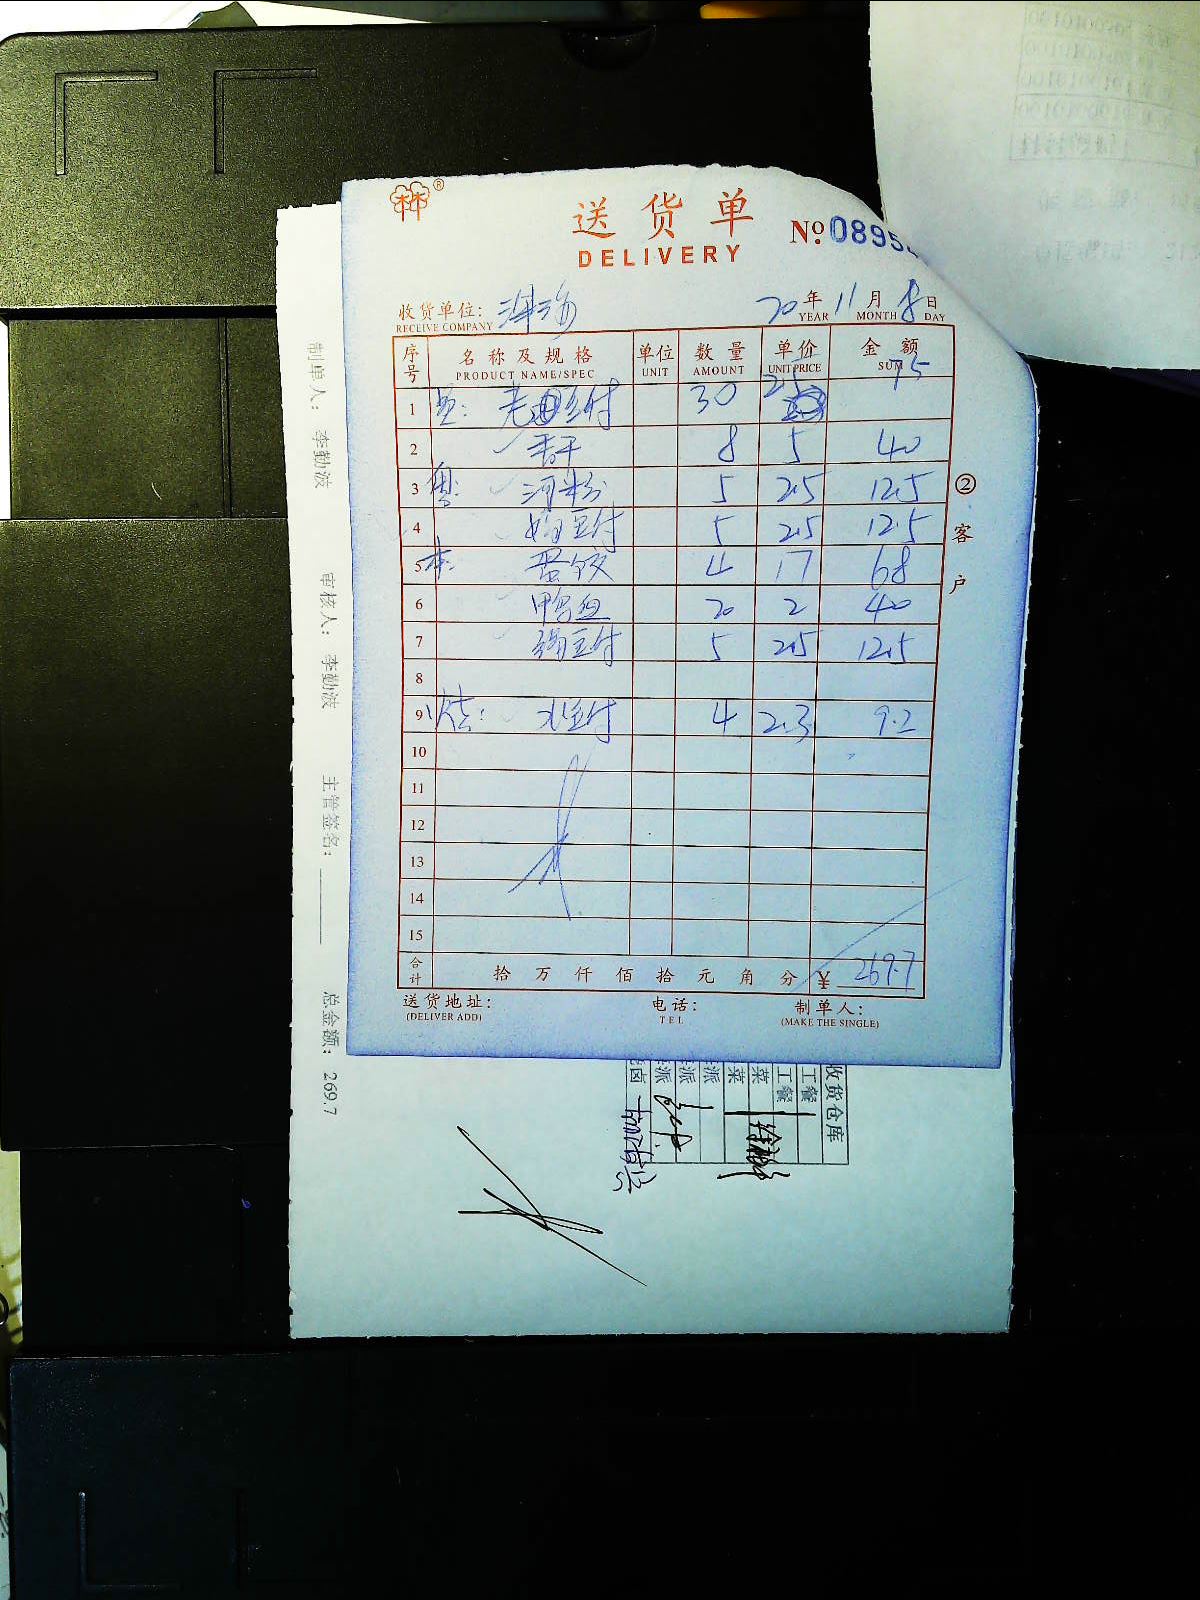 送货单
DELIVERY
№ 0895
收货单位:
RECEIVE COMPANY
20 年 11 月 8 日
YEAR MONTH DAY
序号 名称及规格 单位 数量 单价 金额
PRODUCT NAME/SPEC UNIT AMOUNT UNIT PRICE SUM
1 老豆付 30 2.5 75
2 香干 8 5 40
3 河粉 5 2.5 12.5
4 豆付 5 2.5 12.5
5 蛋饺 4 17 68
6 鸭血 20 2 40
7 豆付 5 2.5 12.5
8
9 水豆付 4 2.3 9.2
10
11
12
13
14
15
合计 拾 万 仟 佰 拾 元 角 分 ¥ 269.7
送货地址: 电话: 制单人:
(DELIVER ADD) TEL (MAKE THE SINGLE)
②客户
制单人: 李勤波 审核人: 李勤波 主管签名: 总金额: 269.7
收货仓库
工餐
工餐
菜
菜
派
派
派
卤